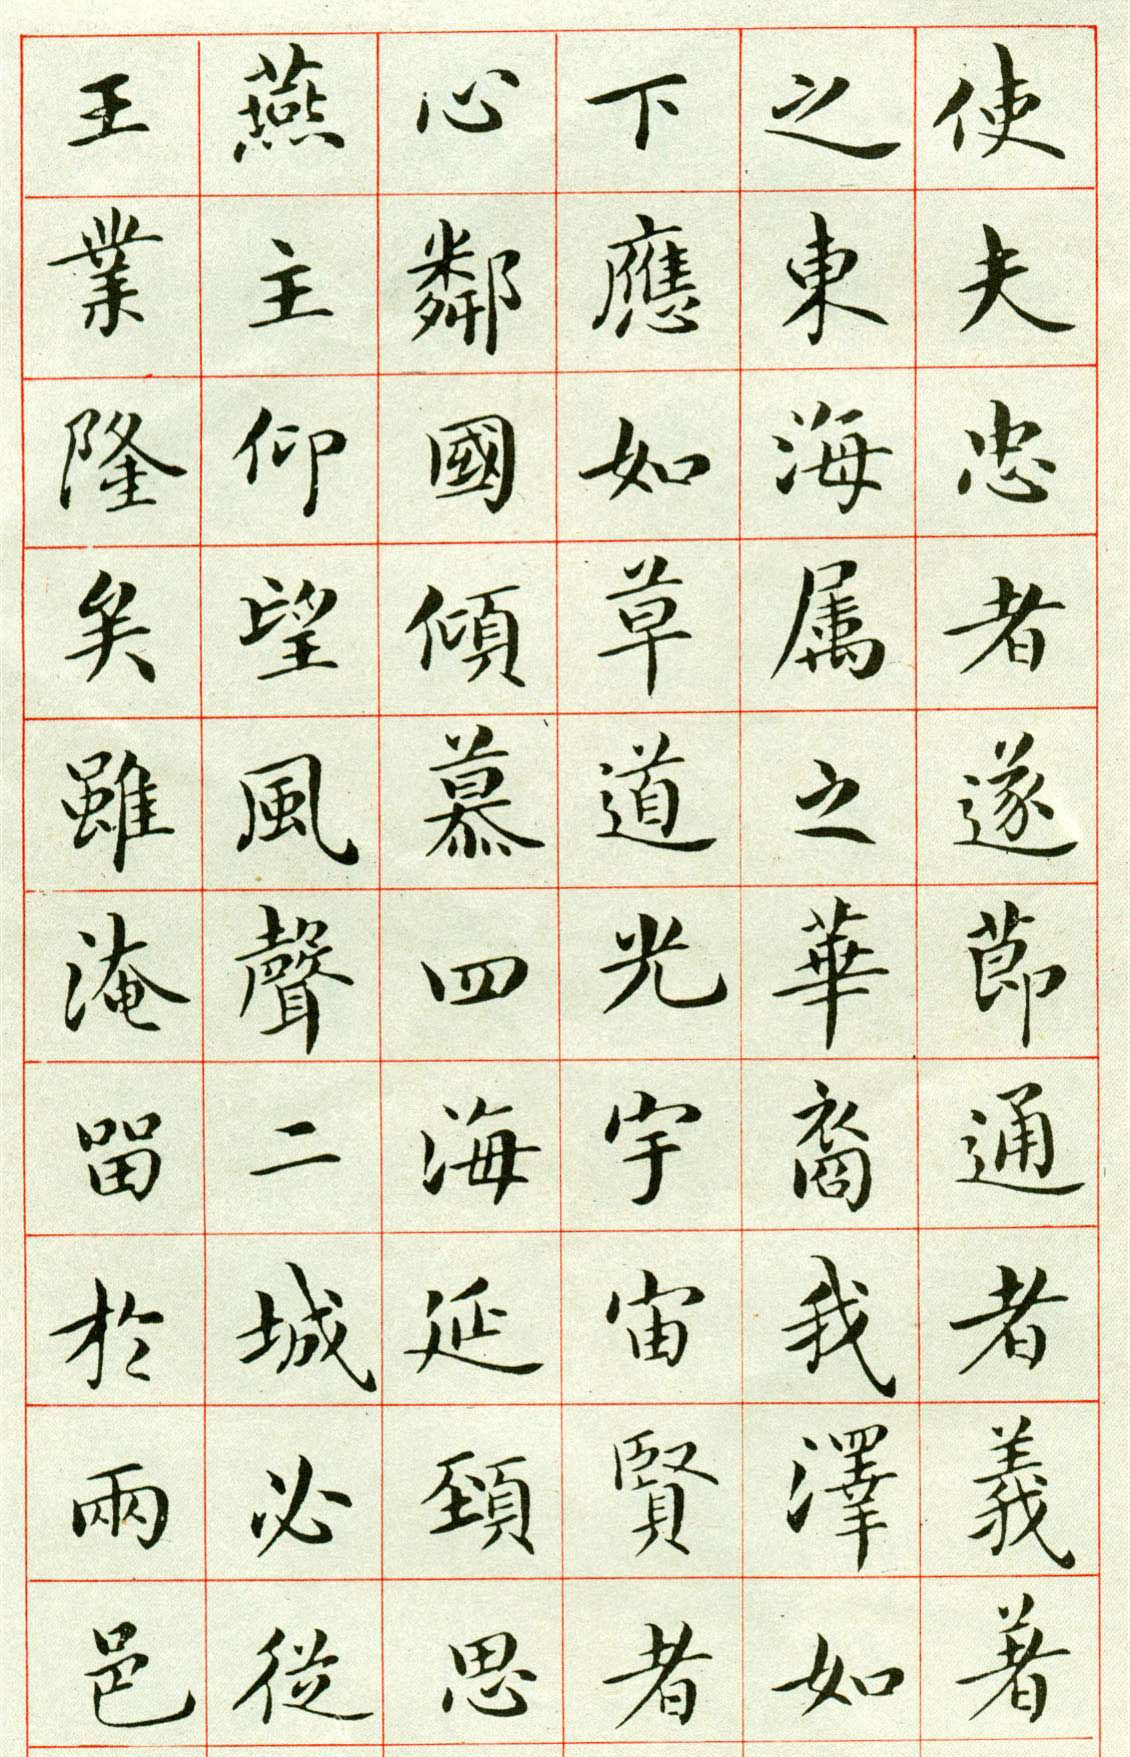 使夫忠者遂節通者義著
之東海属之華裔我澤如
下應如草道光宇宙賢者
心鄰國傾慕四海延頸思
燕主仰望風聲二城必從
王業隆矣雖淹留於兩邑